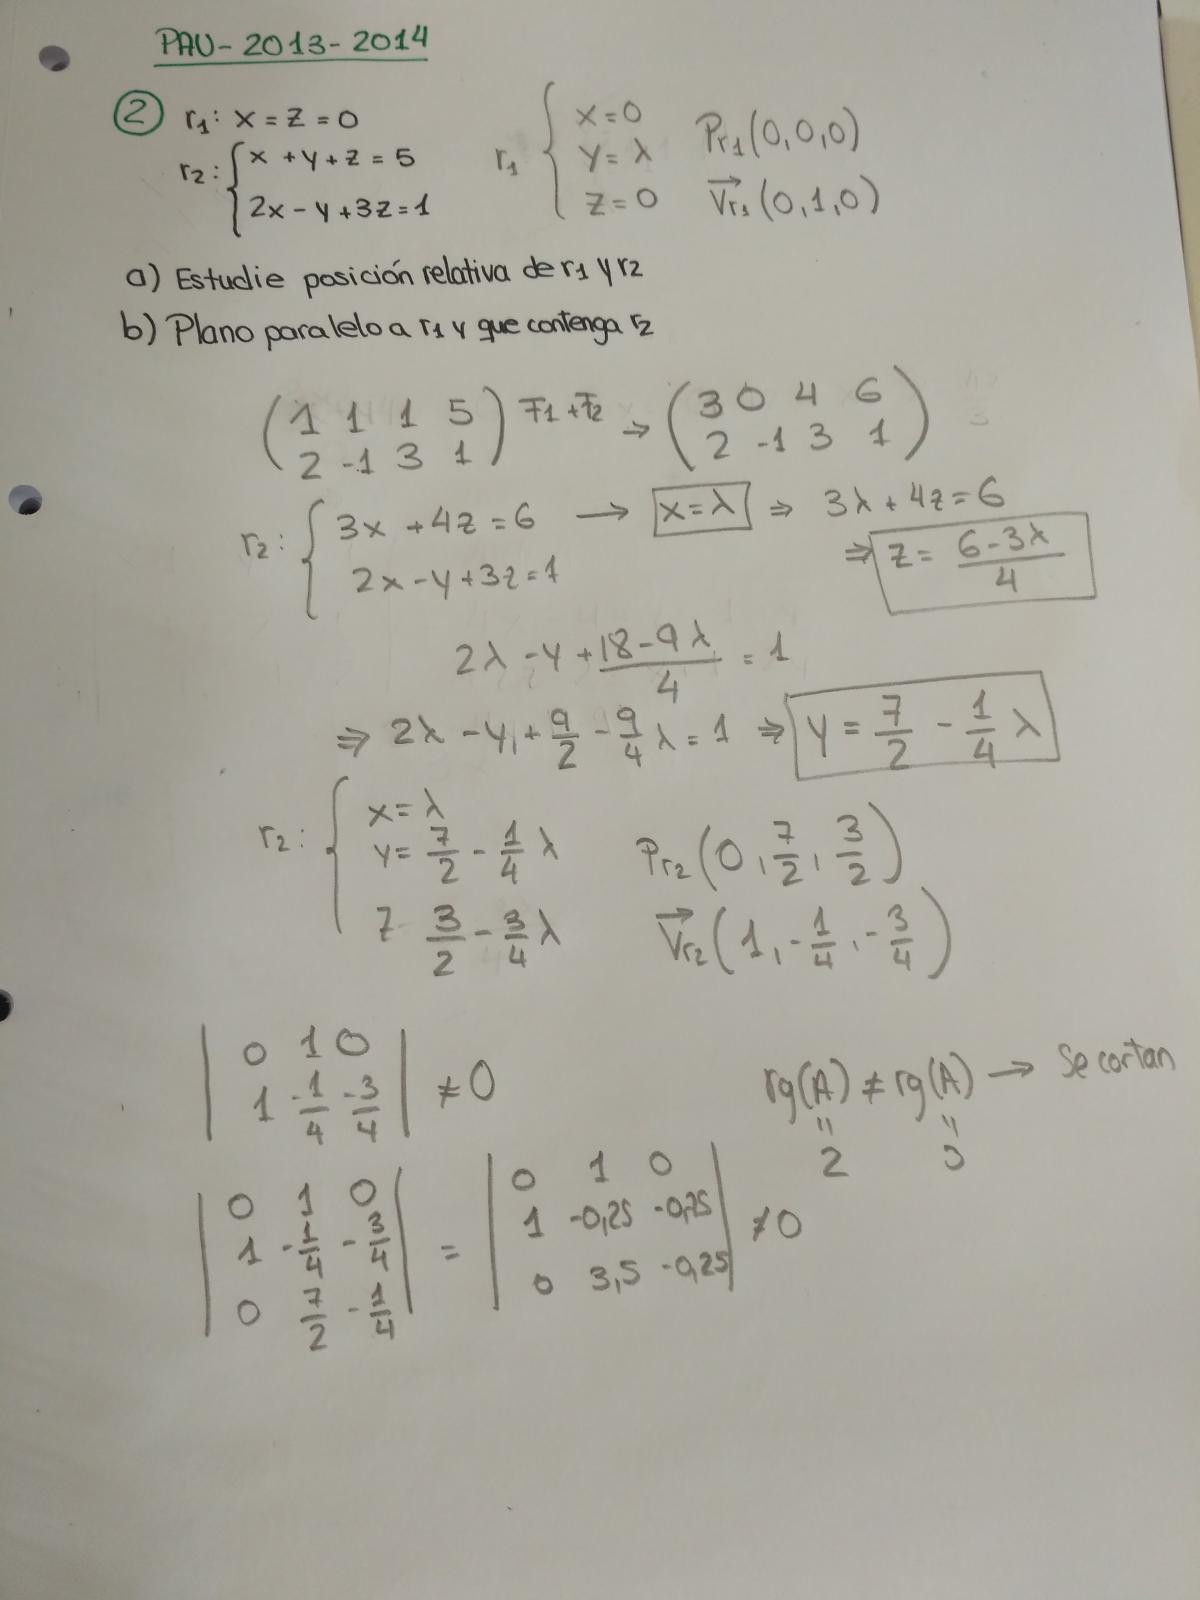 PAU-2013-2014
② r1: x = z = 0
r2: { x + y + z = 5
2x - y + 3z = 1
r1 { x = 0
y = λ
z = 0
Pr1 (0,0,0)
Vr1 (0,1,0)
a) Estudie posición relativa de r1 y r2
b) Plano paralelo a r1 y que contenga r2
( 1 1 1 5
2 -1 3 1 ) F1 + F2 → ( 3 0 4 6
2 -1 3 1 )
r2: { 3x + 4z = 6 → x = λ ⇒ 3λ + 4z = 6
2x - y + 3z = 1 ⇒ z = (6-3λ)/4
2λ - y + (18-9λ)/4 = 1
⇒ 2λ - y + 9/2 - 9/4 λ = 1 ⇒ y = 7/2 - 1/4 λ
r2: { x = λ
y = 7/2 - 1/4 λ
z 3/2 - 3/4 λ
Pr2 (0, 7/2, 3/2)
Vr2 (1, -1/4, -3/4)
| 0 1 0
1 -1/4 -3/4 | ≠ 0
rg(A) ≠ rg(A) → Se cortan
= 2 = 3
| 0 1 0
1 -1/4 -3/4
0 7/2 -1/4 | = | 0 1 0
1 -0,25 -0,75
0 3,5 -0,25 | ≠ 0